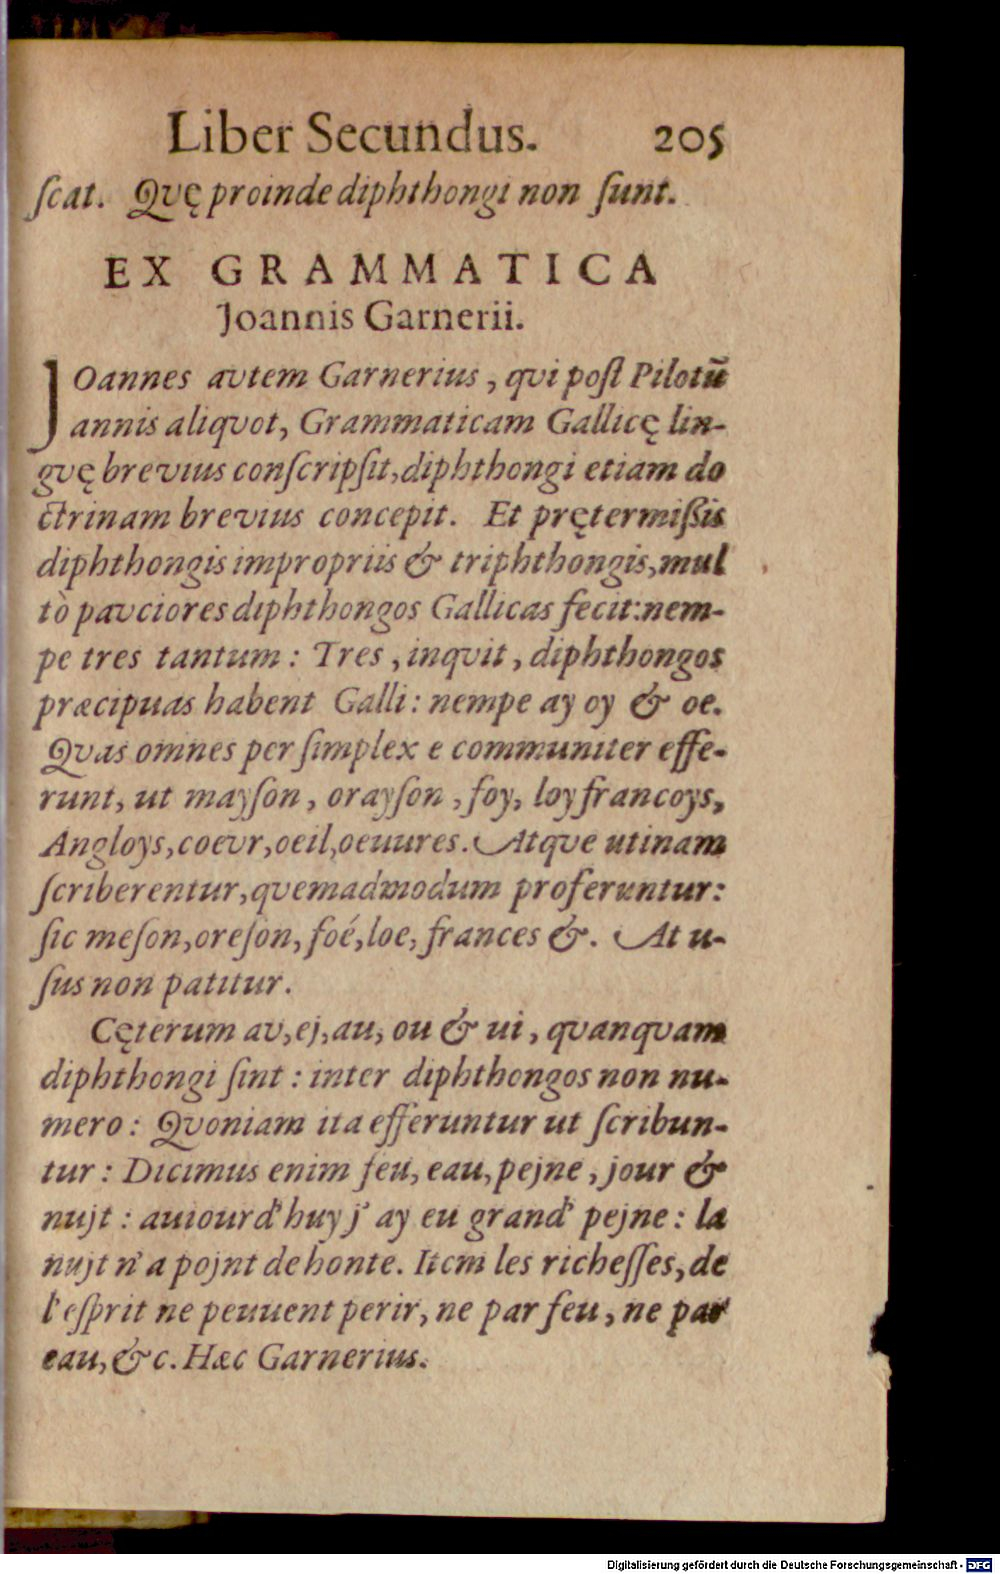 Liber Secundus. 205
ſcat. Qvę proinde diphthongi non ſunt.
EX GRAMMATICA
Joannis Garnerii.
JOannes avtem Garnerius, qvi poſt Pilotū
annis aliqvot, Grammaticam Gallicę lin-
gvę brevius conſcripſit, diphthongi etiam do
ctrinam brevius concepit. Et prętermiſsis
diphthongis impropriis & triphthongis, mul
tò pavciores diphthongos Gallicas fecit: nem-
pe tres tantum: Tres, inqvit, diphthongos
præcipuas habent Galli: nempe ay oy & oe.
Qvas omnes per ſimplex e communiter effe-
runt, ut mayſon, orayſon, foy, loy francoys,
Angloys, coevr, oeil, oeuures. Atqve utinam
ſcriberentur, qvemadmodum proferuntur:
ſic meſon, oreſon, foé, loe, frances &. At u-
ſus non patitur.
Cęterum av, ej, au, ou & ui, qvanqvam
diphthongi ſint: inter diphthongos non nu-
mero: Qvoniam ita efferuntur ut ſcribun-
tur: Dicimus enim feu, eau, pejne, jour &
nujt: auiourd'huy j' ay eu grand' pejne: la
nujt n'a pojnt de honte. Item les richeſſes, de
l'eſprit ne peuuent perir, ne par feu, ne par
eau, &c. Hæc Garnerius.
Digitalisierung gefördert durch die Deutsche Forschungsgemeinschaft - DFG